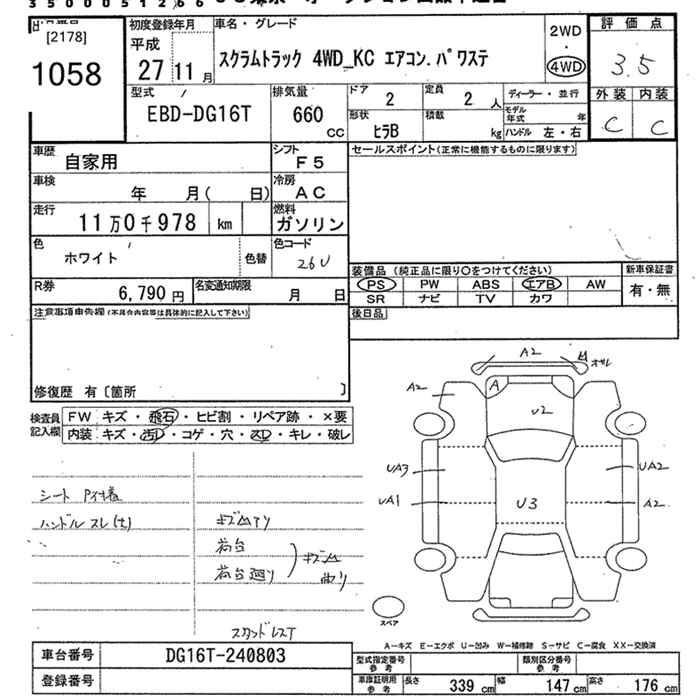 [2178]
1058
初度登録年月
平成
27 11 月
車名・グレード
スクラムトラック 4WD_KC エアコン.パワステ
2WD
・
4WD
評価点
3.5
外装 内装
C C
型式
EBD-DG16T
排気量
660
CC
ドア
2
定員
2 人
ディーラー・並行
モデル年式 年
形状
ヒラB
積載
kg
ハンドル 左・右
車歴
自家用
シフト
F5
セールスポイント(正常に機能するものに限ります)
車検
年 月( 日)
冷房
AC
走行
11万0千978 km
燃料
ガソリン
色
ホワイト
色替
色コード
26U
R券
6,790 円
名変通知期限
月 日
装備品 (純正品に限り○をつけてください)
新車保証書
PS PW ABS エアB AW
有・無
SR ナビ TV カワ
注意事項申告欄(不具合内容等は具体的に記入して下さい)
後日品
修復歴 有〔箇所 〕
検査員記入欄
FW キズ・飛石・ヒビ割・リペア跡・×要
内装 キズ・汚レ・コゲ・穴・スレ・キレ・破レ
シート
ハンドル スレ(大)
荷台
荷台廻り
A2
A2
A
U2
UA3
UA1
U3
UA2
A2
スペア
A−キズ E−エクボ U−凹み W−補修跡 S−サビ C−腐食 XX−交換済
車台番号
DG16T-240803
登録番号
型式指定番号
参考
類別区分番号
参考
車庫証明用
参考
長さ 339 cm 幅 147 cm 高さ 176 cm